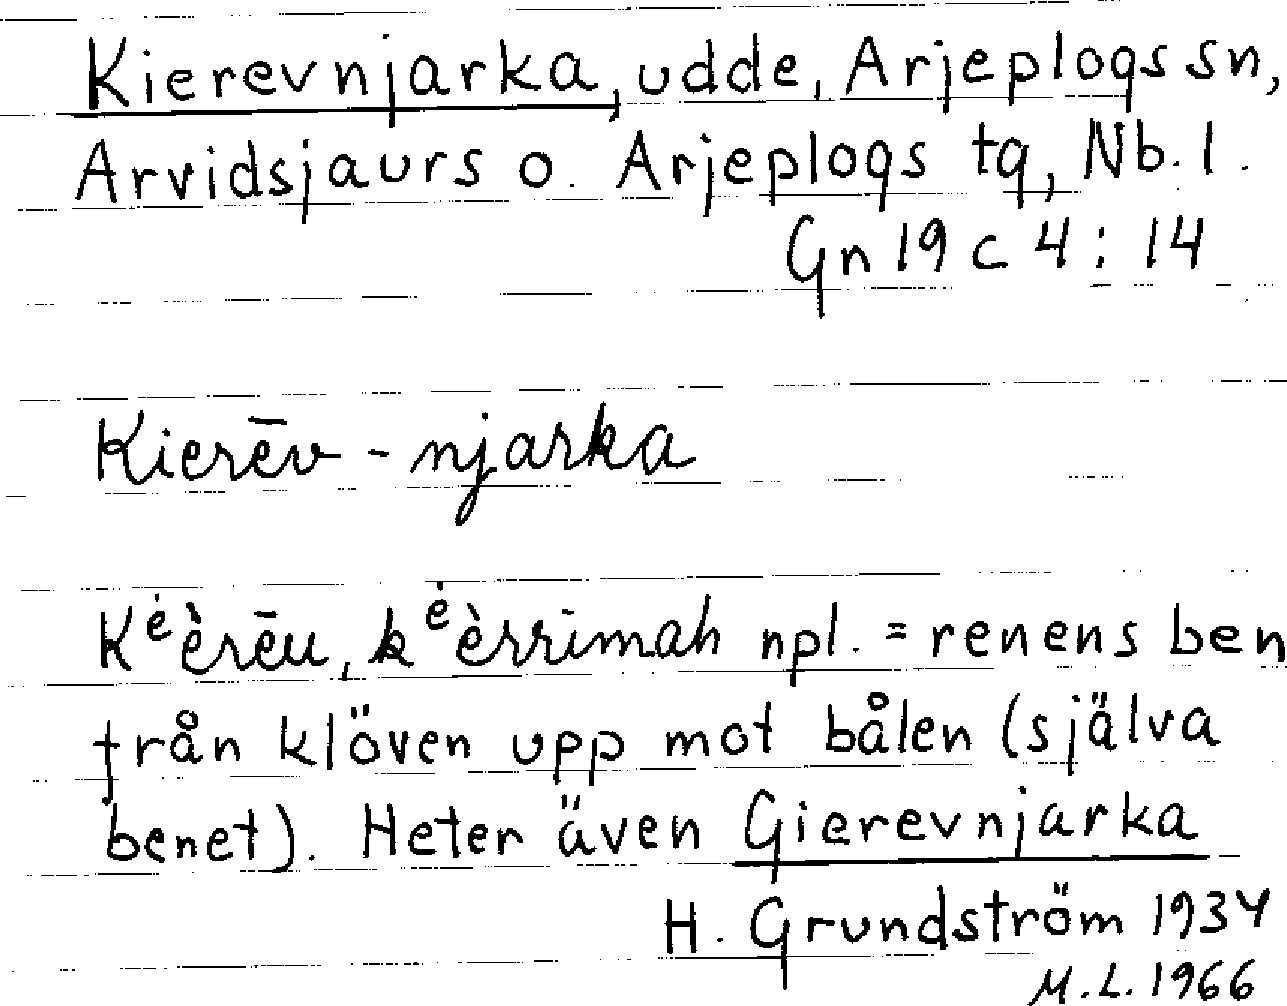 Kierevnjarka, udde, Arjeplogs sn,
Arvidsjaurs o. Arjeplogs tg, Nb. l.
Gn 19 c 4 : 14
Kierēv - njarka
Kėèrēu, kėèrrimah npl. = renens ben
från klöven upp mot bålen (själva
benet). Heter även Gierevnjarka
H. Grundström 1934
M.L. 1966